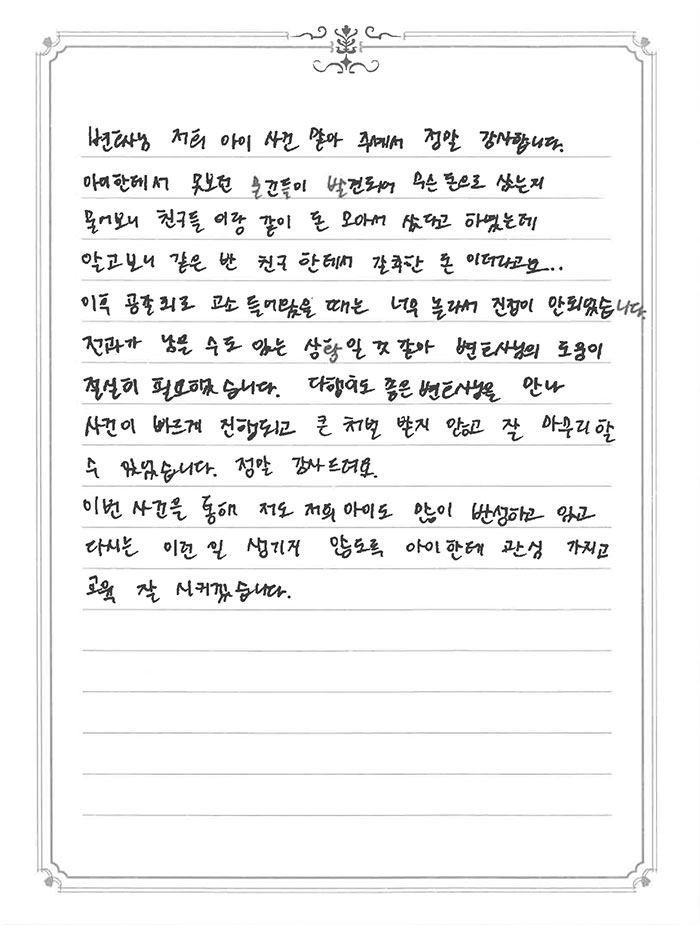 변호사님 저희 아이 사건 맡아 주셔서 정말 감사합니다.
아이한테서 못보던 물건들이 발견되어 무슨 돈으로 샀는지
물어보니 친구들 이랑 같이 돈 모아서 샀다고 하였는데
알고보니 같은 반 친구 한테서 갈취한 돈 이더라고요..
이후 공갈죄로 고소 들어왔을 때는 너무 놀라서 진정이 안되었습니다.
전과가 남을 수도 있는 상황일 것 같아 변호사님의 도움이
절실히 필요했습니다. 다행히도 좋은 변호사님을 만나
사건이 빠르게 진행되고 큰 처벌 받지 않고 잘 마무리 할
수 있었습니다. 정말 감사드려요.
이번 사건을 통해 저도 저희 아이도 많이 반성하고 있고
다시는 이런 일 생기지 않도록 아이한테 관심 가지고
교육 잘 시키겠습니다.